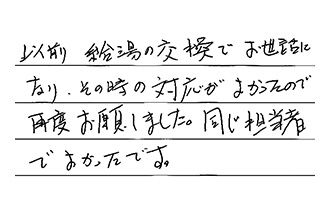 以前 給湯の交換で お世話に
なり、その時の対応がよかったので
再度お願いしました。同じ担当者
でよかったです。